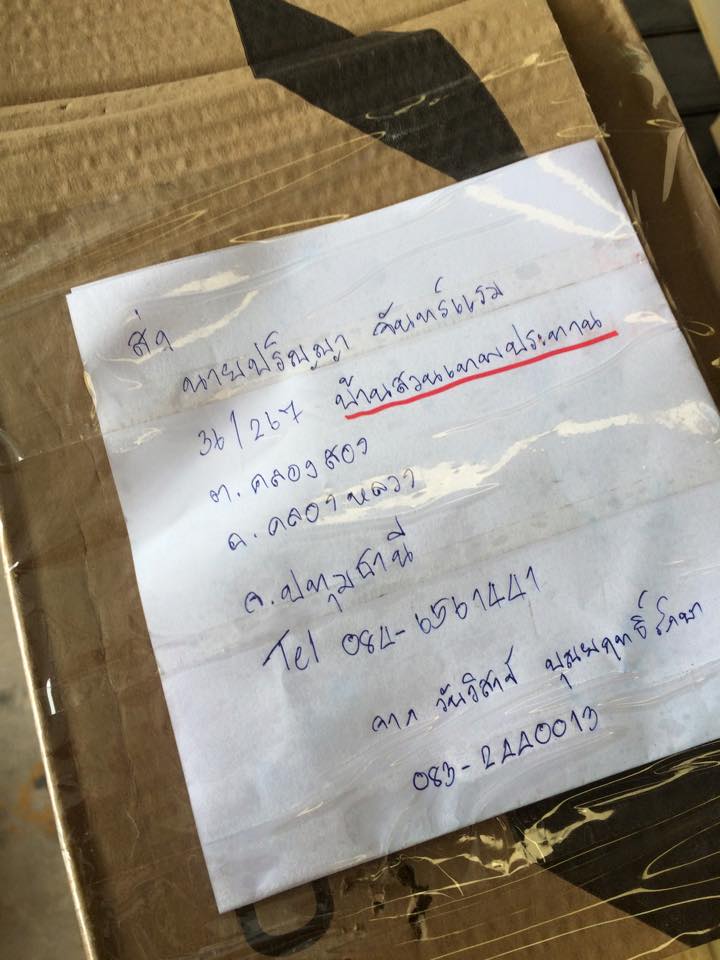 ส่ง
นายปริญญา จันทร์แรม
36/267 บ้านสวนเทพประทาน
ต. คลองสอง
อ. คลองหลวง
จ. ปทุมธานี
Tel 084-6561441
จาก วันวิสาข์ บุญยฤทธิ์
083-2440013